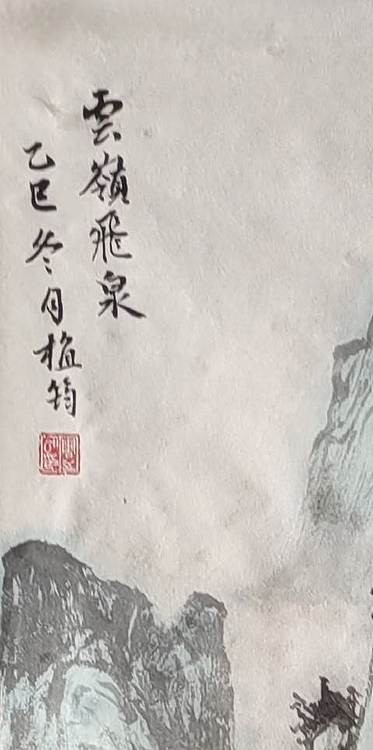 雲嶺飛泉
乙巳冬月植筠